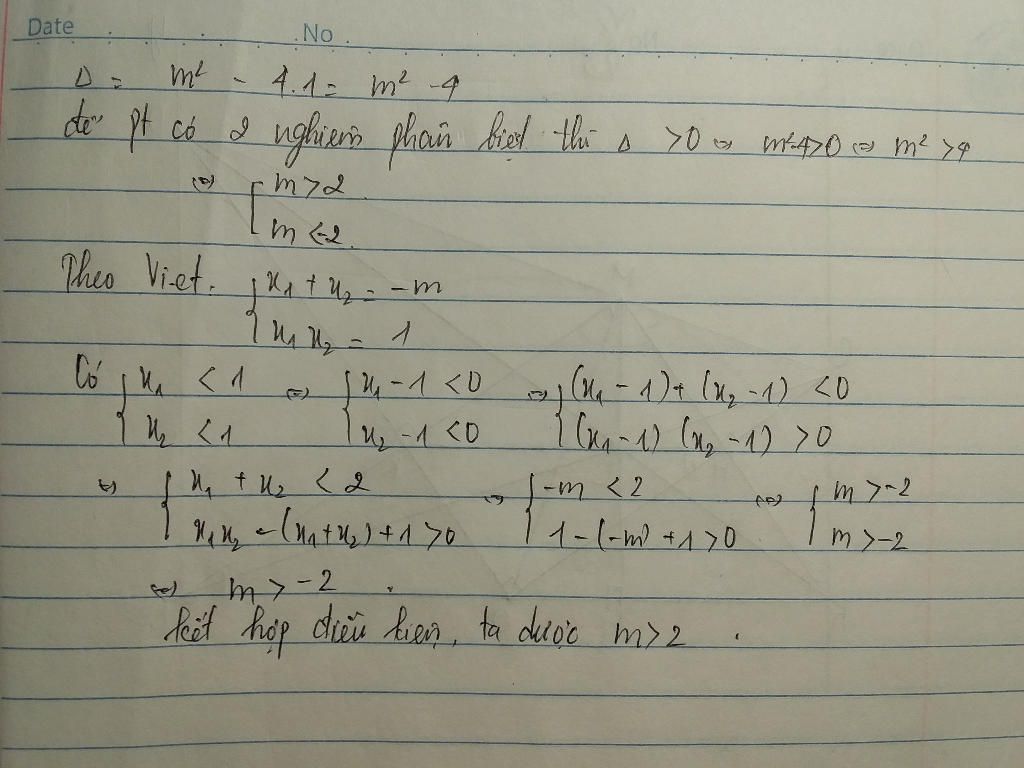 Date No
Δ = m² - 4.1 = m² - 4
để pt có 2 nghiệm phân biệt thì Δ >0 ⇔ m²-4>0 ⇔ m² >4
⇔ [ m>2
m<-2.
Theo Vi-et. { x₁ + x₂ = -m
x₁ x₂ = 1
Có { x₁ < 1 ⇔ { x₁ - 1 <0 ⇔ { (x₁ - 1) + (x₂ -1) <0
x₂ <1 x₂ -1 <0 (x₁-1) (x₂ -1) >0
⇔ { x₁ + x₂ < 2 ⇔ { -m <2 ⇔ { m >-2
x₁x₂ -(x₁+x₂) +1 >0 1-(-m) +1>0 m>-2
⇔ m> -2 .
kết hợp điều kiện, ta được m>2 .